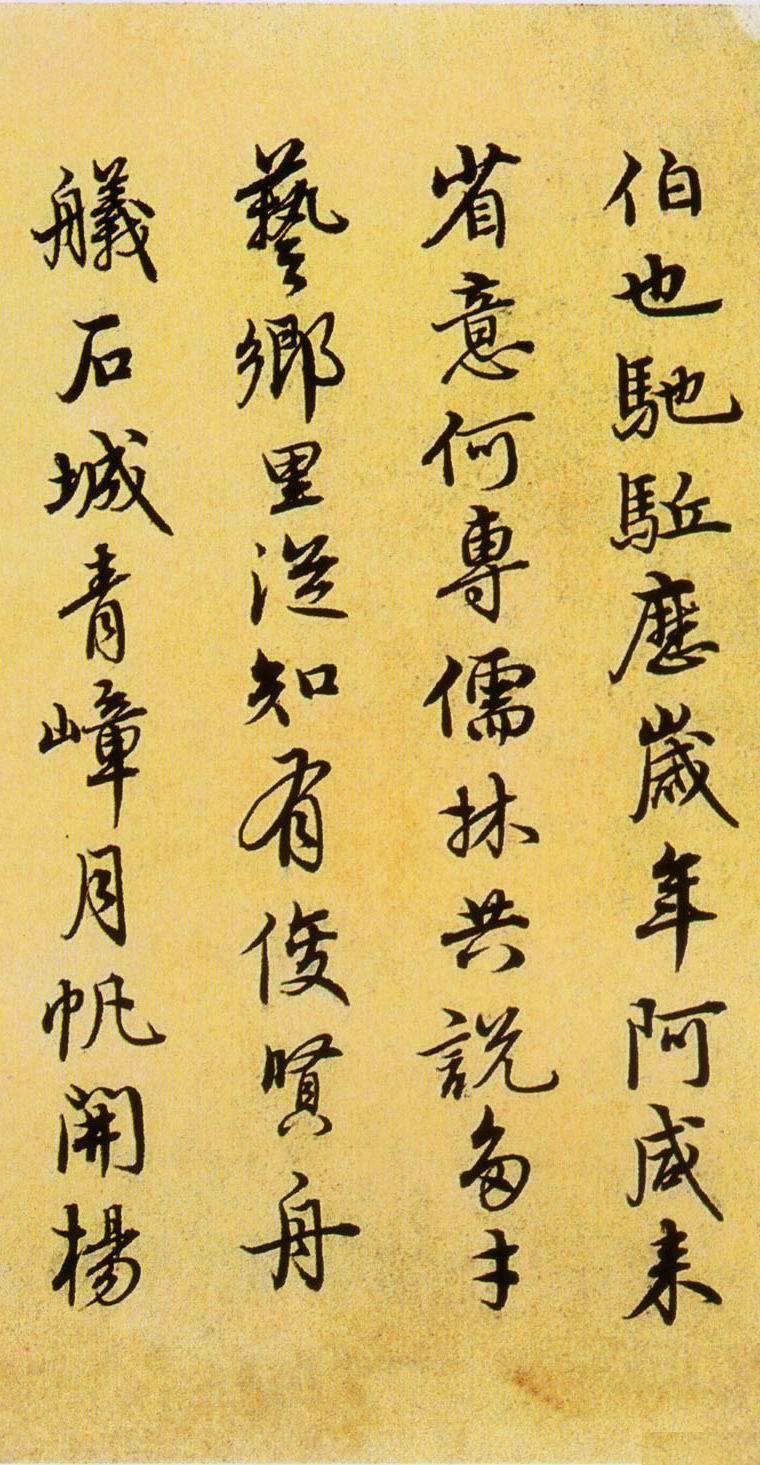 伯也馳駈歷歲年阿咸来
省意何專儒林共說多才
藝鄉里從知有俊賢舟
艤石城青嶂月帆開楊